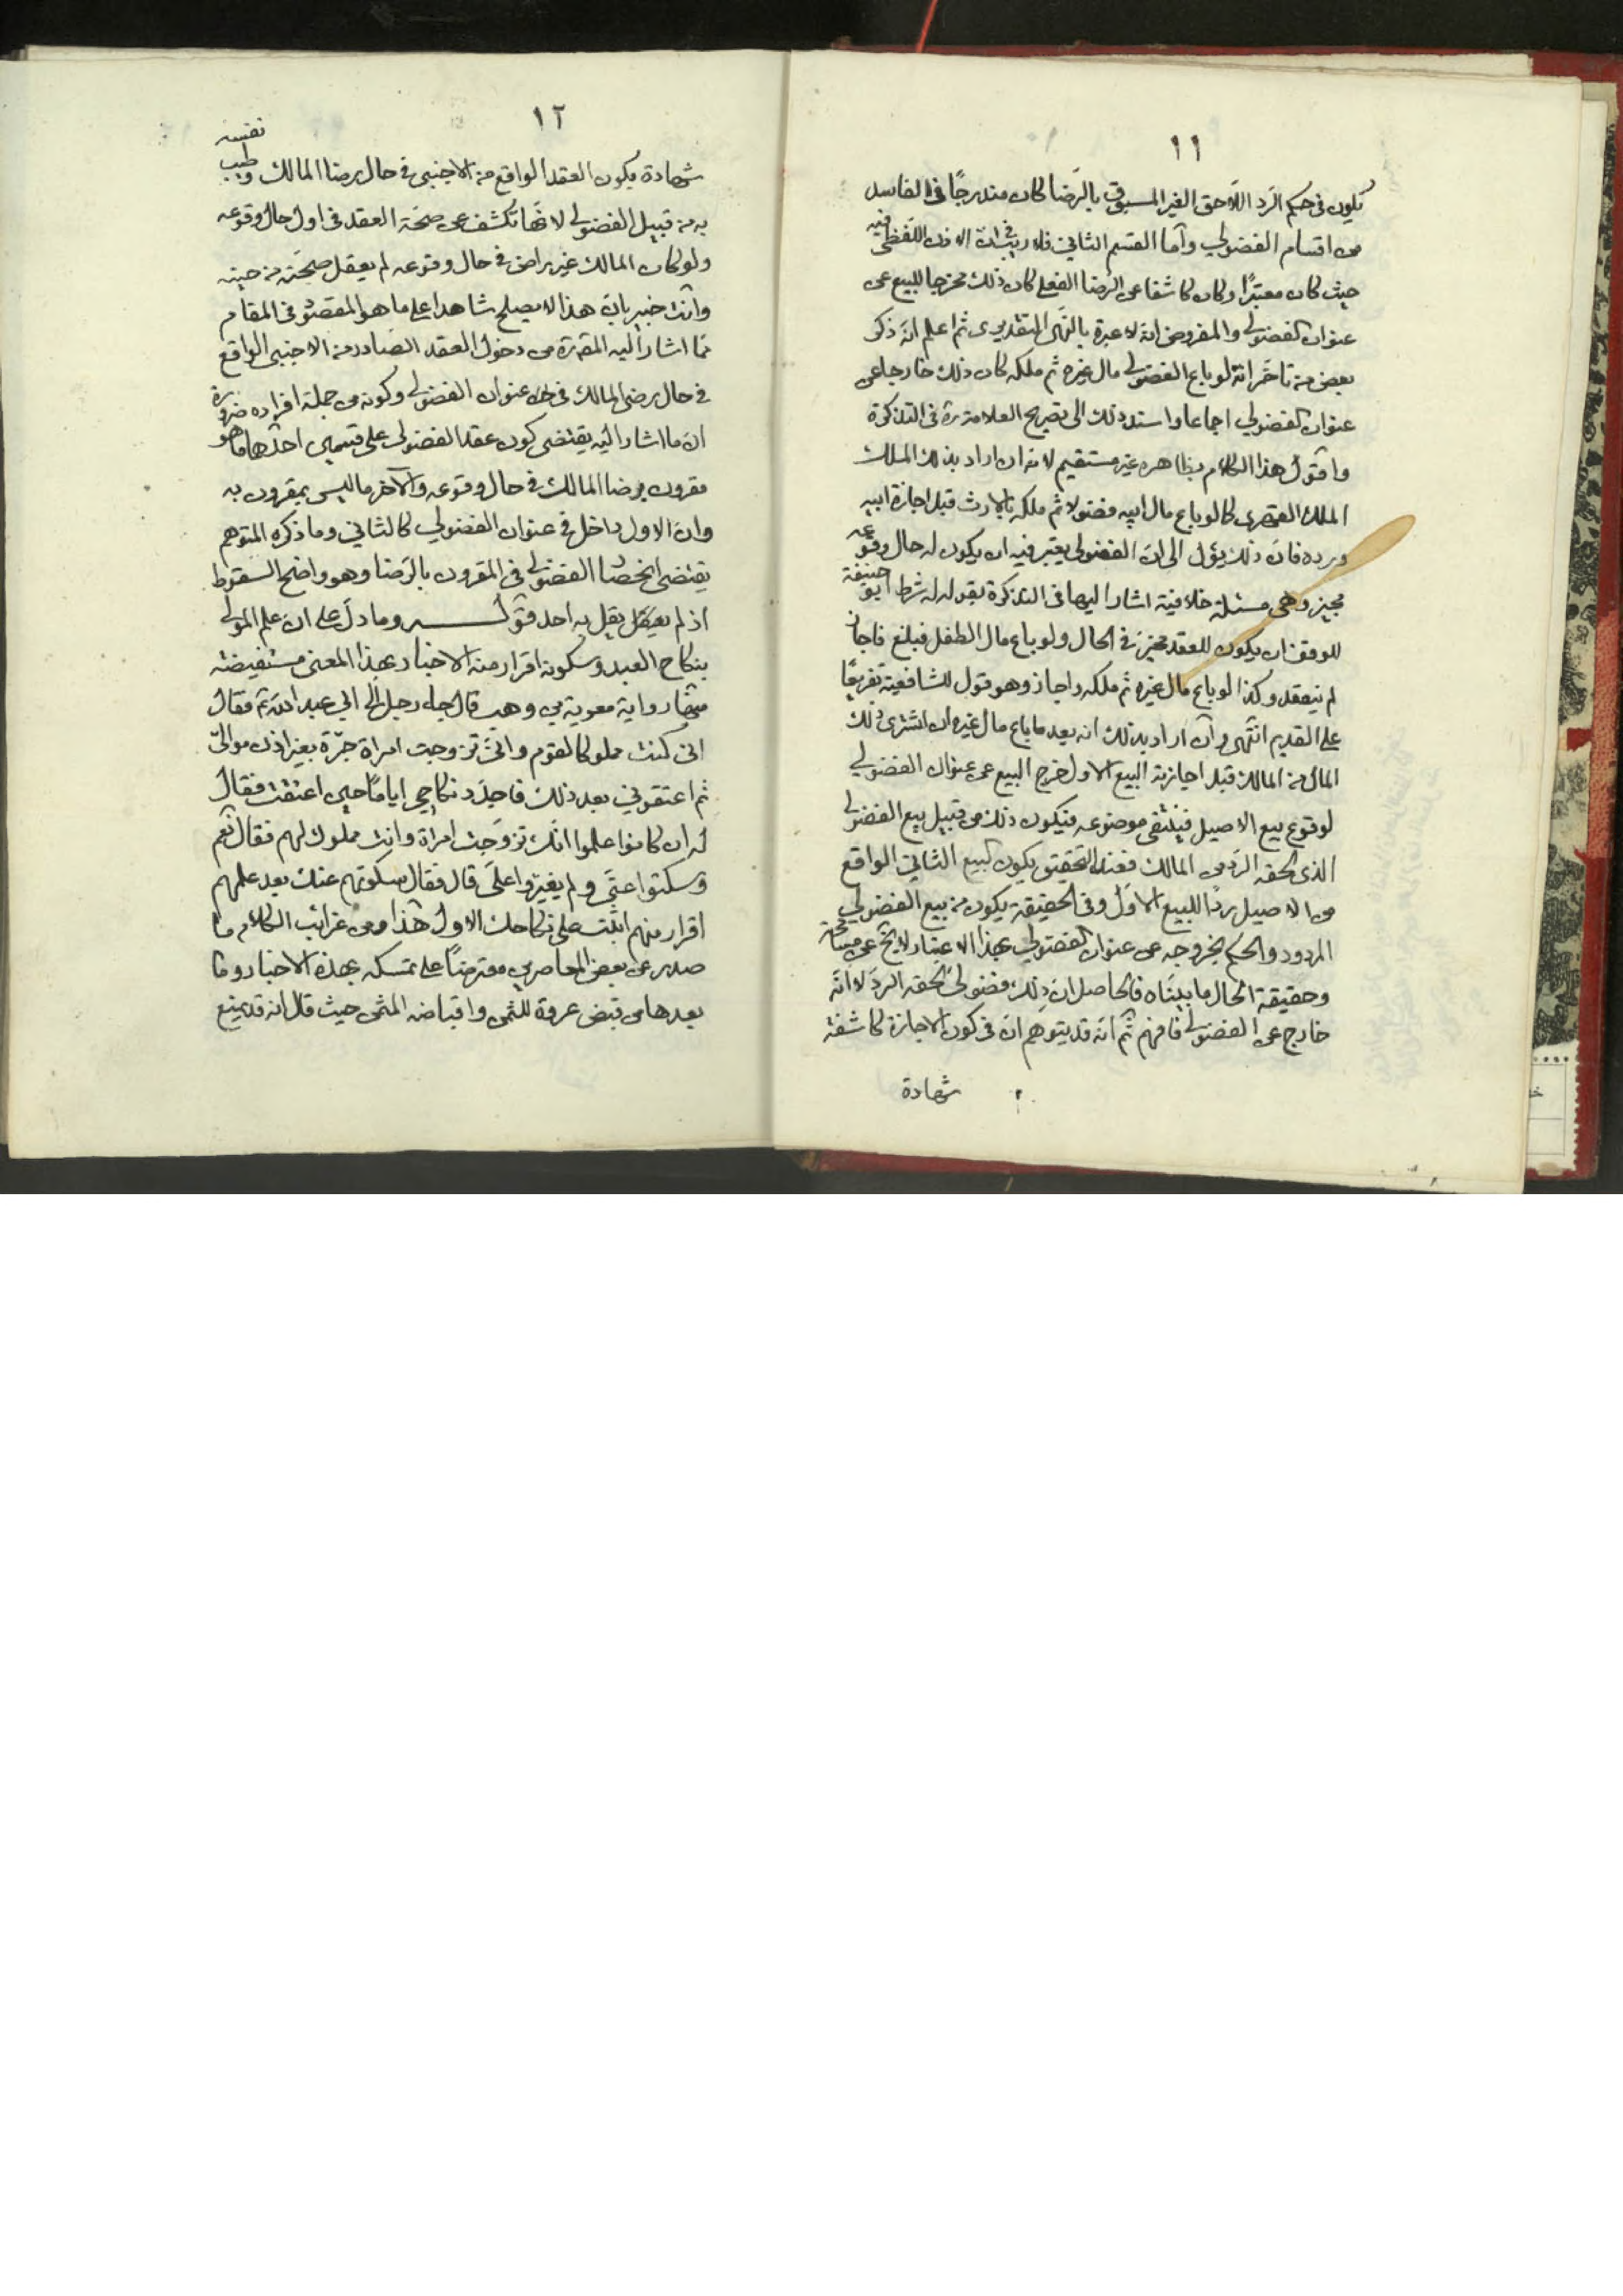 ١١
تكون في حكم الرد اللاحق الغير المسبوق بالرضا كان مندرجًا في الفاسد
من اقسام الفضولي وأما القسم الثاني فلا ريب في ان الاذن اللفظي فيه
حيث كان معتبرًا وكان كاشفا عن الرضا الفعلي كان ذلك مخرجا للبيع عن
عنوان الفضولي والمفروض انه لا عبرة بالنهي التقديري ثم اعلم انه ذكر
بعض من تاخر انه لو باع الفضولي مال غيره ثم ملكه كان ذلك خارجا عن
عنوان الفضولي اجماعا واسند ذلك الى تصريح العلامة ره في التذكرة
واقول هذا الكلام بظاهره غير مستقيم لانه ان اراد بذلك الملك
الملك القهري كما لو باع مال ابيه فضولا ثم ملكه بالارث قبل اجازة ابيه
ورده فان ذلك يؤل الى ان الفضولي يعتبر فيه ان يكون له حال وقوعه
مجيز وهي مسئلة خلافية اشار اليها في التذكرة بقوله شرط ابو حنيفة
للوقف ان يكون للعقد مجيز في الحال ولو باع مال الطفل فبلغ فاجاز
لم ينعقد وكذا لو باع مال غيره ثم ملكه واجاز وهو قول للشافعية تفريعًا
على القديم انتهى وان اراد بذلك انه بعد ما باع مال غيره ان اشترى ذلك
المال من المالك قبل اجازته البيع الاول خرج البيع عن عنوان الفضولي
لوقوع بيع الاصيل فينتفى موضوعه فيكون ذلك من قبيل بيع الفضولي
الذى لحقه الرد من المالك فعند التحقيق يكون البيع الثاني الواقع
من الاصيل ردًا للبيع الاول وفي الحقيقة يكون من بيع الفضولي
المردود والحكم بخروجه عن عنوان الفضولي بهذا الاعتبار لا يخ عن مسامحة
وحقيقة الحال ما بيناه فالحاصل ان ذلك فضولي لحقه الرد لا انه
خارج عن الفضولي فافهم ثم انه قد يتوهم ان في كون الاجازة كاشفة
شهادة
١٢
شهادة بكون العقد الواقع من الاجنبى في حال رضا المالك وطيب نفسه
به من قبيل الفضولي لانها تكشف عن صحة العقد في اول حال وقوعه
ولو كان المالك غير راض في حال وقوعه لم يعقل صحته من حينه
وانت خبير بان هذا لا يصلح شاهدا على ما هو المقصود في المقام
مما اشار اليه المقدرة من دخول العقد الصادر من الاجنبى الواقع
في حال رضى المالك في عنوان الفضولي وكونه من جملة افراده ضرورة
ان ما اشار اليه يقتضى كون عقد الفضولي على قسمين احدهما ما هو
مقرون برضا المالك في حال وقوعه والآخر ما ليس بمقرون به
وان الاول داخل في عنوان الفضولي كالثاني وما ذكره المتوهم
يقتضى انحصار الفضولي في المقرون بالرضا وهو واضح السقوط
اذ لم يقل به احد قوله وما دل على ان علم المولى
بنكاح العبد وسكوته اقرار منه الاخبار بهذا المعنى مستفيضة
منها رواية معوية بن وهب قال جاء رجل الى ابي عبد الله ع فقال
انى كنت مملوكا لقوم وانى تزوجت امراة حرة بغير اذن موالىّ
ثم اعتقونى بعد ذلك فاجدد نكاحى اياها حين اعتقت فقال
له ان كانوا علموا انك تزوجت امراة وانت مملوك لهم فقال نعم
وسكتوا عنى ولم يغيروا علىّ قال فقال سكوتهم عنك بعد علمهم
اقرار منهم اثبت على نكاحك الاول هذا ومن غرائب الكلام ما
صدر عن بعض المعاصرين معترضًا على تمسكه بهذه الاخبار وما
بعدها من قبض عروة للثمن واقباضه المثمن حيث قال انه قد يمنع